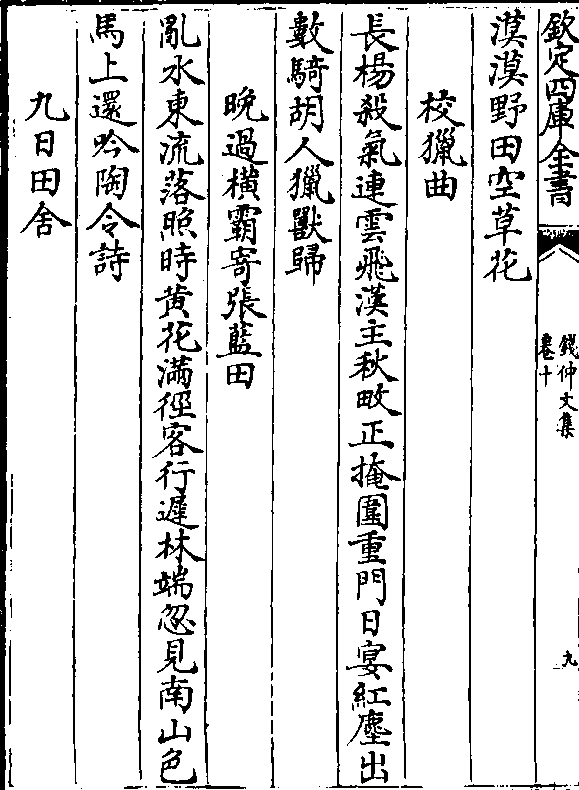 欽定四庫全書
錢仲文集
卷十
九
漠漠野田空草花
校獵曲
長楊殺氣連雲飛漢主秋畋正掩圍重門日宴紅塵出
數騎胡人獵獸歸
晚過橫霸寄張藍田
亂水東流落照時黄花滿徑客行遲林端忽見南山色
馬上還吟陶令詩
九日田舍